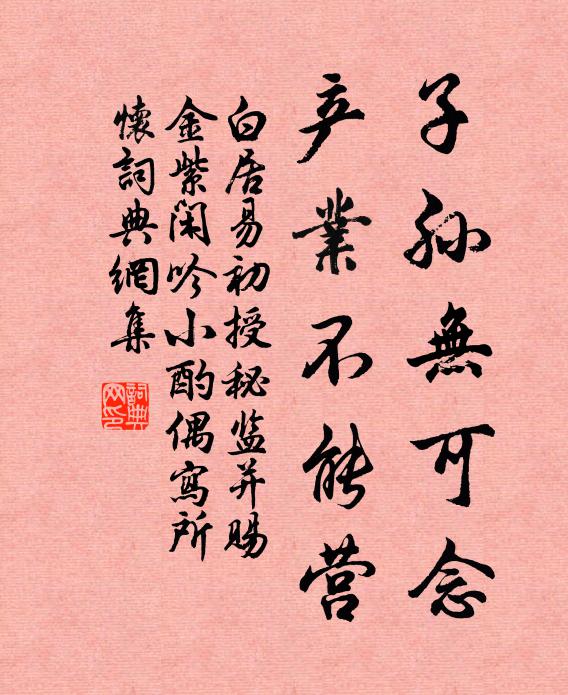 子孙無可念
产業不能营
白居易初授秘监并賜
金紫闲吟小酌偶寫所
懷詞典網集
詞典
网印